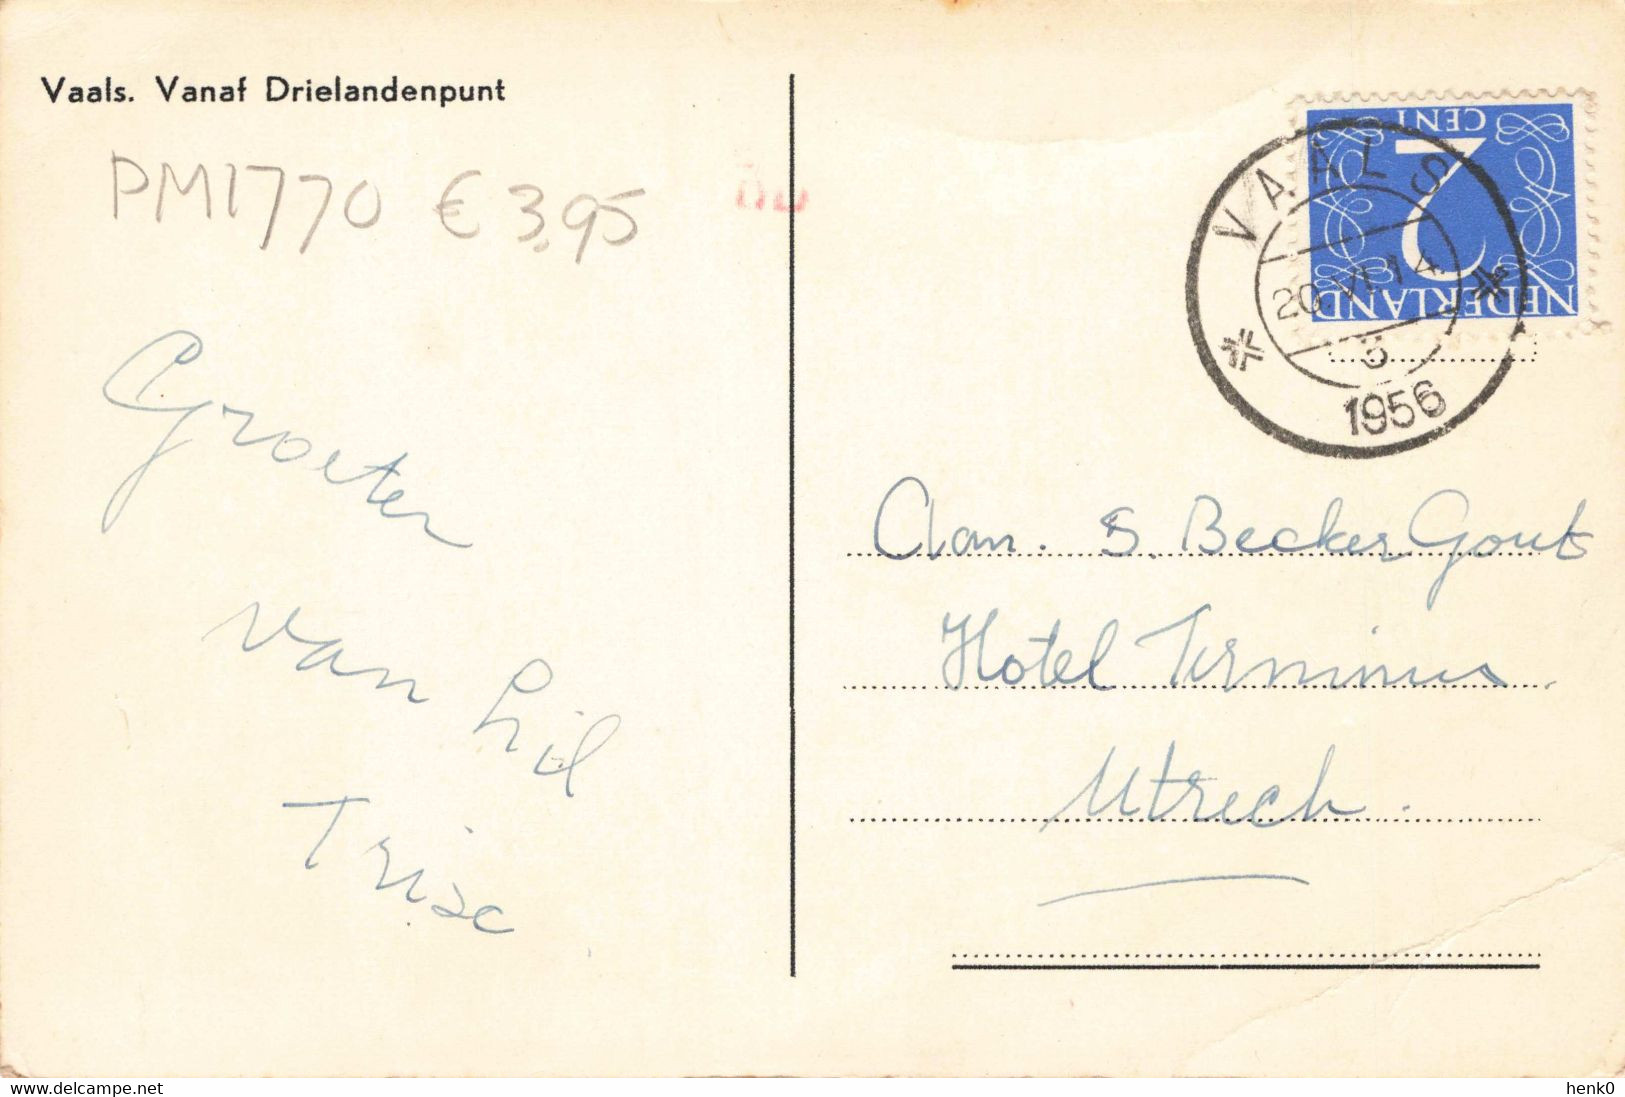 Vaals. Vanaf Drielandenpunt
PM1770 € 3,95
Groeten
van Lil
Trisc
CENT
2
NEDERLAND
VAALS
20.VI.14
1956
Aan. S. Becker Gouts
Hotel Terminus.
Utrech.
www.delcampe.net
henk0